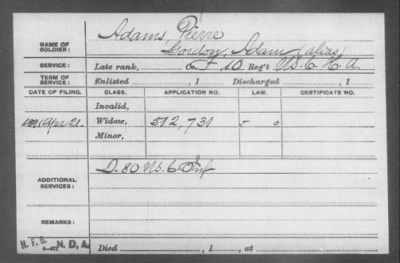 Adams, Pierre
NAME OF SOLDIER: Gordon, Adam (alias)
SERVICE: Late rank, F 10 Reg't U.S.C.H.A.
TERM OF SERVICE: Enlisted , 1 Discharged , 1
DATE OF FILING. CLASS. APPLICATION NO. LAW. CERTIFICATE NO.
Invalid,
1891 Apr 21. Widow, 512,731
Minor,
ADDITIONAL SERVICES: D. 80 U.S.C. Inf
REMARKS:
N.D.A. Died , 1 , at